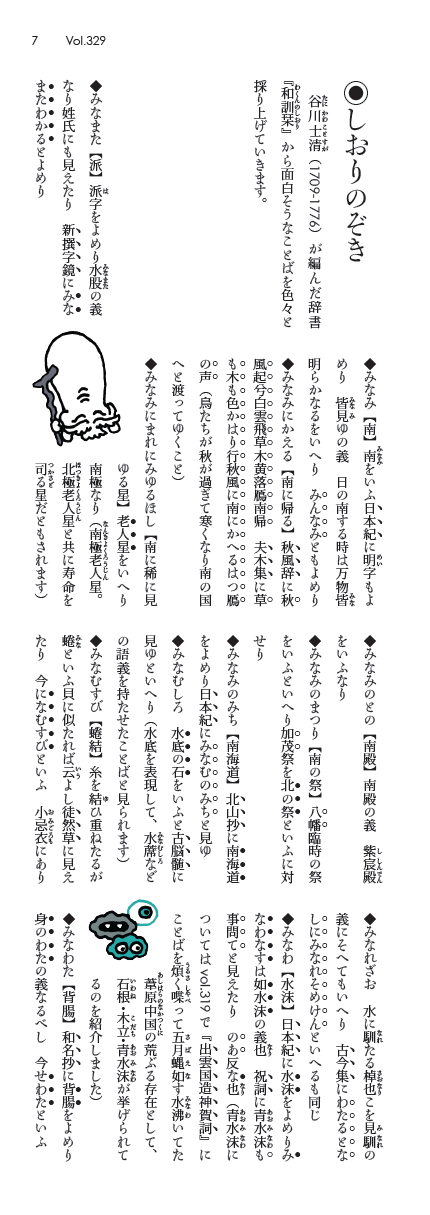 7 Vol.329
◉しおりのぞき
谷川士清（1709-1776）が編んだ辞書
『和訓栞』から面白そうなことばを色々と
採り上げていきます。
◆みなまた【派】派字をよめり水股の義
なり姓氏にも見えたり　新撰字鏡にみな
またわかるとよめり
◆みなみ【南】南をいふ日本紀に明字もよ
めり　皆見ゆの義　日の南する時は万物皆
明らかなるをいへり　みんなみともよめり
◆みなみにかえる【南に帰る】秋風辞に秋
風起兮白雲飛草木黄落鴈南帰　夫木集に草
も木も色かはり行秋風に南にかへるはつ鴈
の声（鳥たちが秋が過ぎて寒くなり南の国
へと渡ってゆくこと）
◆みなみにまれにみゆるほし【南に稀に見
ゆる星】老人星をいへり
南極なり（南極老人星。
北極老人星と共に寿命を
司る星だともされます）
◆みなみのとの【南殿】南殿の義　紫宸殿
をいふなり
◆みなみのまつり【南の祭】八幡臨時の祭
をいふといへり加茂祭を北の祭といふに対
せり
◆みなみのみち【南海道】北山抄に南海道
をよめり日本紀にみなむのみちと見ゆ
◆みなむしろ　水底の石をいふと古脳髄に
見ゆといへり（水底を表現して、水蓆など
の語義を持たせたことばと見られます）
◆みなむすび【蜷結】糸を結ひ重ねたるが
蜷といふ貝に似たれば云よし徒然草に見え
たり　今になむすびといふ　小忌衣にあり
◆みなれざお　水に馴たる棹也こを見馴の
義にそへてもいへり　古今集にわたるとな
しにみなれそめけんといへるも同じ
◆みなわ【水沫】日本紀に水沫をよめりみ
なわなすは如水沫の義也　祝詞に青水沫も
事問てと見えたり　のあ反な也（青水沫に
ついてはvol.319で『出雲国造神賀詞』に
ことばを煩く喋って五月蝿如す水沸いてた
葦原中国の荒ぶる存在として、
石根・木立・青水沫が挙げられて
るのを紹介しました）
◆みなわた【背腸】和名抄に背腸をよめり
身のわたの義なるべし　今せわたといふ